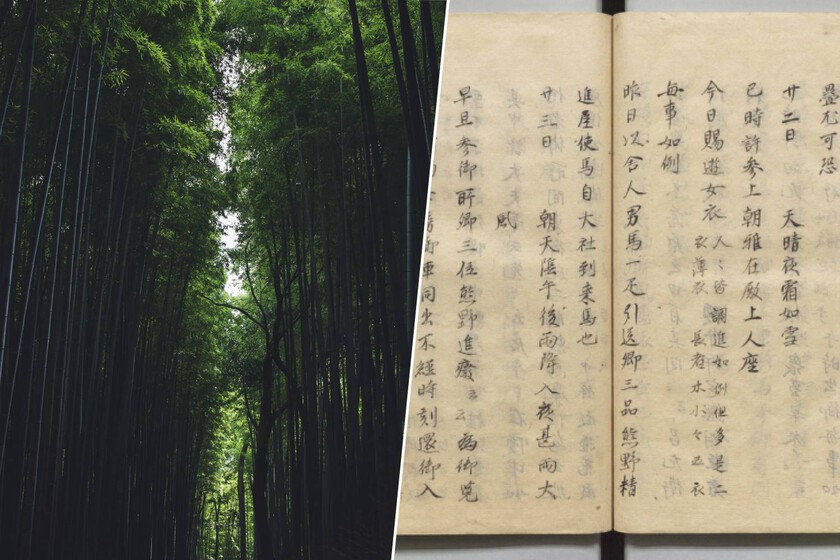 尤可恐
廿二日 天晴夜霜如雪
巳時許参上朝雅在殿上人座
今日賜遊女衣
人々皆調進如例但多是二
衣薄衣 長者 小々五衣
毎事如例
昨日以舎人男馬一疋引送卿三品熊野精
進屋使馬自大社到来馬也
廿三日 朝天陰午後雨降入夜甚雨大
風
早旦参御所卿三位熊野進發云云為御覧
御車同出不経時刻還御入